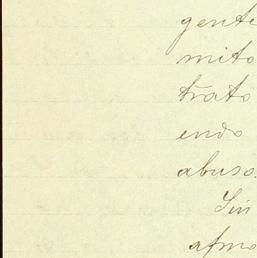 gente
mito
trato
endo
abuso.
Sin
afmo